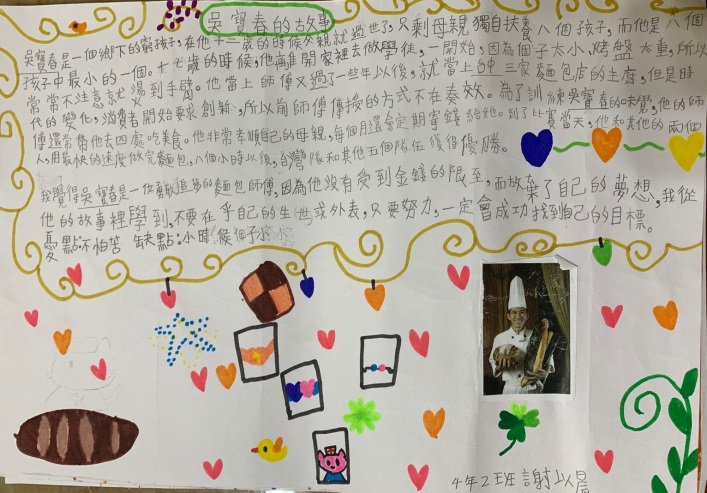 吳寶春的故事
吳寶春是一個鄉下的窮孩子,在他十二歲的時候父親就過世了,只剩母親獨自扶養八個孩子,而他是八個
孩子中最小的一個。十七歲的時候,他離開家裡去做學徒,一開始,因為個子太小、烤盤太重,所以
常常不注意就燙到手臂。他當上師傅又過了一些年以後,就當上台中三家麵包店的主廚,但是時
代的變化,消費者開始要求創新,所以前師傅傳授的方式不在奏效。為了訓練吳寶春的味覺,他的師
傅還常帶他去四處吃美食。他非常孝順自己的母親,每個月還會定期寄錢給她。到了比賽當天,他和其他的兩個
人,用最快的速度做完麵包,八個小時以後,台灣隊和其他五個隊伍獲得優勝。
我覺得吳寶春是一位勇敢追夢的麵包師傅,因為他沒有受到金錢的限至,而放棄了自己的夢想,我從
他的故事裡學到,不要在乎自己的生世或外表,只要努力,一定會成功找到自己的目標。
優點:不怕苦 缺點:小時候個子小
4年2班 謝以晨